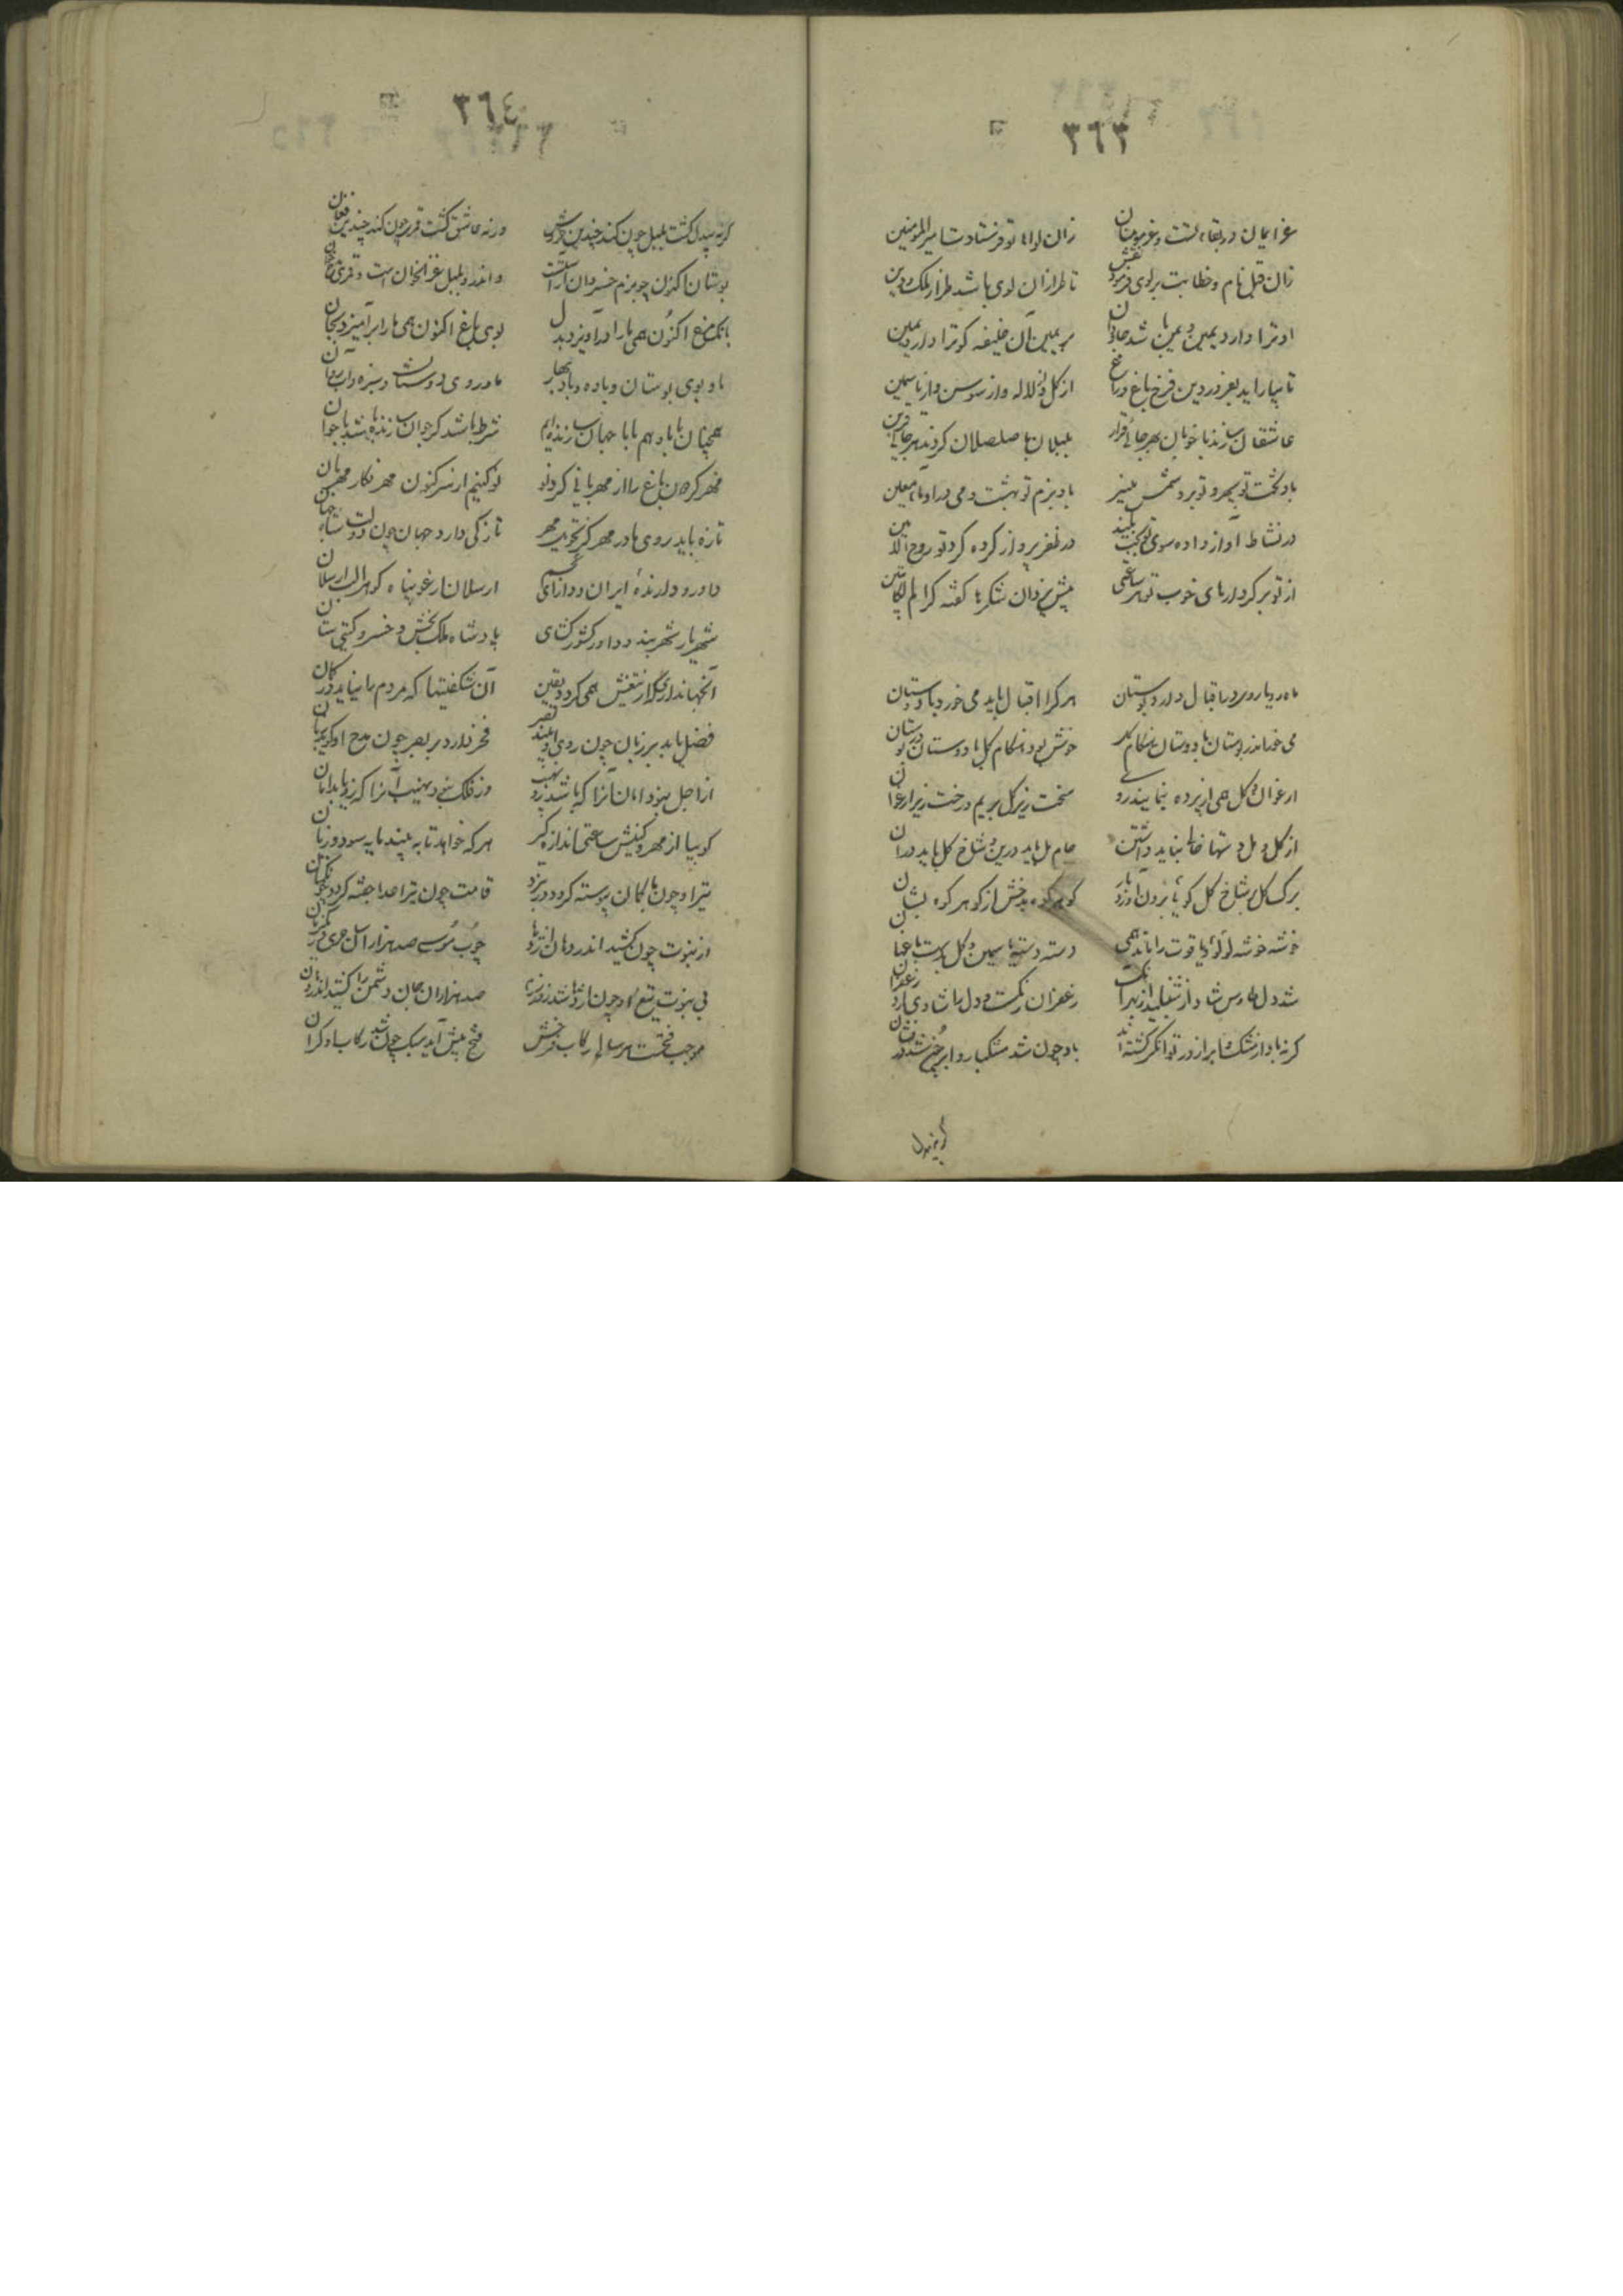 ٣٦٣
عز ایمان در بقاء تست و عز مومنان زان لواء تو فرستادت امیر المومنین
زان قبل نام و خطابت بر لوی فرمود نقش تا طراز آن لوی باشد طراز ملک و دین
او ترا دارد یمین و یمن باشد جاودان بر یمین آن خلیفه کو ترا دارد یمین
تا بیاراید بفروردین فرخ باغ و راغ از گل و از لاله و از سوسن و از یاسمین
عاشقان سازند با خوبان بهر جائی قرار بلبلان با صلصلان گردند هر جائی قرین
باد تخت تو سپهر و تو برو شمس منیر باد بزم تو بهشت و می درو ماء معین
در نشاط آواز داده سوی تو بخت بلند در ظفر پرواز کرده گرد تو روح الامین
از تو بر کردارهای خوب تو هر ساعتی پیش یزدان شکرها گفته کرام الکاتبین
ماه رویا رو بره اقبال دارد بوستان هر کرا اقبال باید می خورد با دوستان
می خور اندر بوستان با دوستان هنگام گل خوش بود هنگام گل با دوستان در بوستان
ارغوان و گل همی از پرده بنمایند روی تخت زیر گل بریم و رخت زیر ارغوان
از گل و مل دستها خالی نباید داشتن جام مل باید درین و شاخ گل باید در آن
برگ گل بر شاخ گل گویی برون آورد باز گوهر کوه بدخش از گوهر کوه
خوشه خوشه لؤلؤ و یاقوت را ماند همی دسته دسته یاسمین و گل بدست باغبان
شد دل طاوس شاد از شنبلید ازبهر آنک زعفران رنگست و دل را شادی آرد زعفران
گرنه باد از مشک و ابر از در توانگر گشته اند باد چون شد مشکبار و ابر چون شد درفشان
گر نه بیدل
٣٦٤
گر نه بیدل گشت بلبل چون کند چندین خروش ور نه عاشق گشت قمری چون کند چندین فغان
بوستان اکنون چو بزم خسروان آراستست و اندرو بلبل غزلخوان است و قمری
بانگ مرغ اکنون همی ما را درآویزد بدل بوی باغ اکنون همی ما را برآمیزد بجان
ما و بوی بوستان و باده و باد بهار ما و روی دوستان و سبزه و آب روان
همچنان با باد هم با با جهان سازنده ایم شرط باشد کر جوان سازنده باشد با جوان
مهرگر چون باغ را از مهربانی کرد نو نو کنیم از سر کنون مهر نگار مهربان
تازه باید روی ما در مهر گر تحویل مهر تازگی دارد جهان چون دولت شاه جهان
داور و دارنده ایران و دارای عجم ارسلان ارغو پناه گوهر الب ارسلان
شهریار شهربند و داور کشور گشای پادشاه ملک بخش و خسرو گیتی ستان
آنجهانداری که از تیغش همی گردد یقین آن شگفتیها که مردم را نیاید در گمان
فضل یابد بر زبان چون روی او بیند بصر فخر دارد بر بصر چون مدح او گوید زبان
از اجل نبود امان آنرا که باشد زو نهیب وز فلک نبود نهیب آنرا که زو یابد امان
گو بیا از مهر و کینش ساعتی اندازه گیر هر که خواهد تا به بیند مایه سود و زیان
تیر او چون با کمان پیوسته گردد در نبرد قامت چون تیر اعدا جفته گردد چون کمان
از نبوت چون کشید اندر دهان اژدها چوب موسی صد هزاران سحر در یکزمان
بی نبوت تیغ او چون اژدها شد در نبرد صد هزاران جان دشمن را کشید اندر دهان
موجب فتحست هر سالی رکاب فرخش فتح پیش آید سبک چون شد رکاب او گران